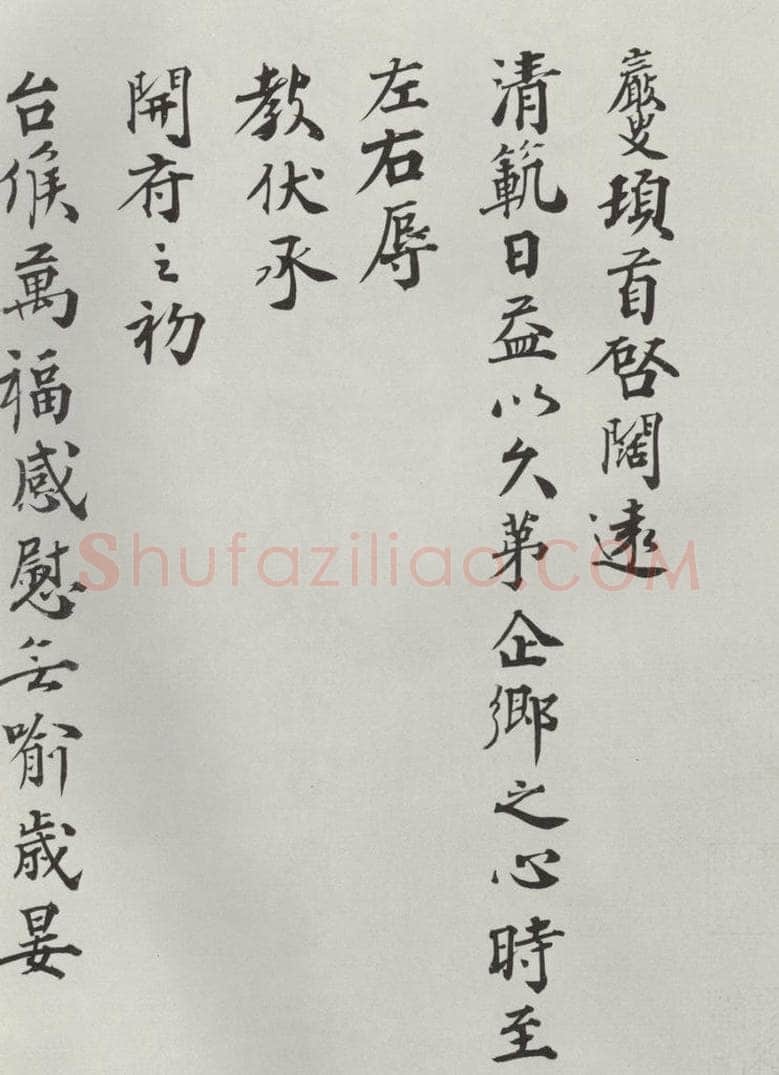 巖叟頓首啓闊遠
清範日益以久第企鄉之心時至
左右辱
教伏承
開府之初
台候萬福感慰無喻歲晏
Shufaziliao.COM